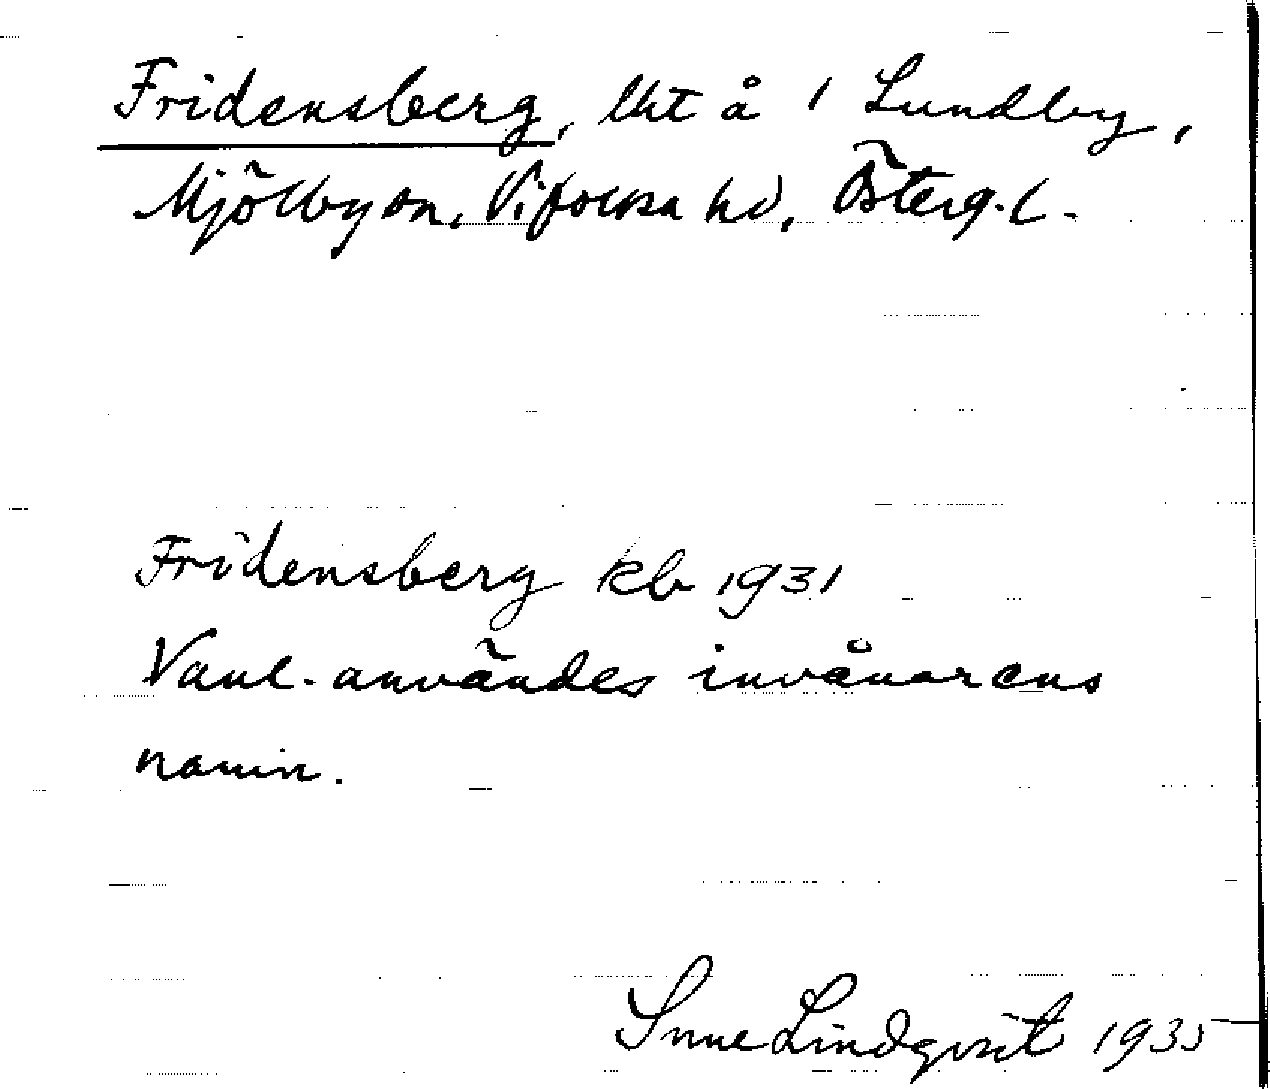 Fridensberg, lht å 1 Lundby,
Mjölby sn, Vifolka hd, Österg. l.
Fridensberg kb 1931
Vanl. användes invånarens
namn.
Sune Lindqvist 1935